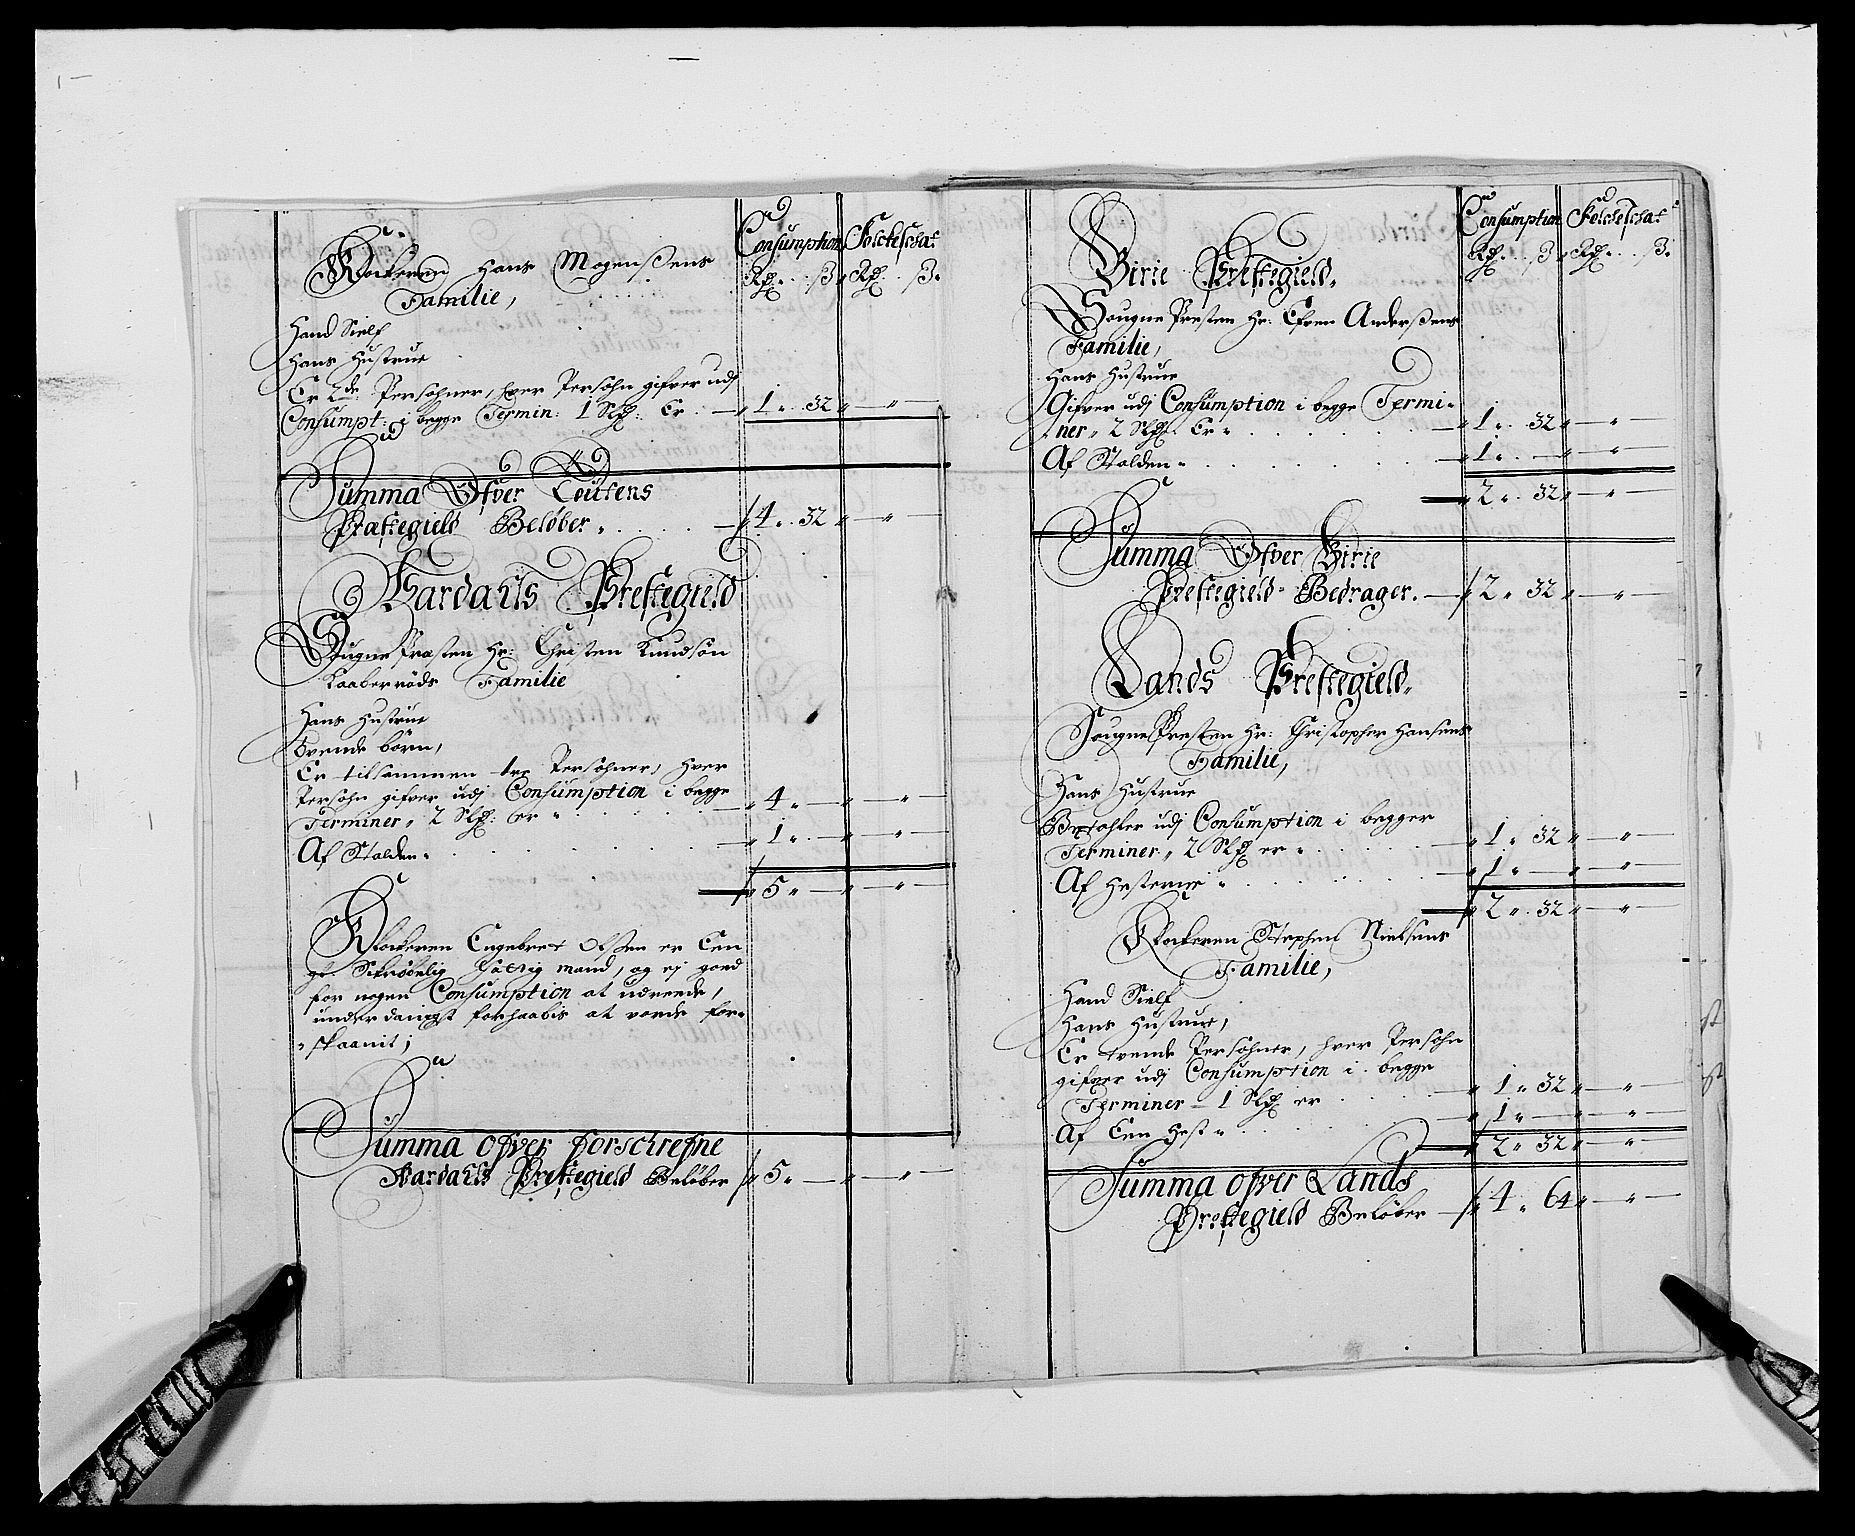 Consumption Folckeschat
Rdr. ß Rdr. ß
Klockeren Hans Mogenßens
Familie,
Hand Sielf
Hans Hustrue
Er 2de Persohner, hver Persohn gifver udj
Consumpt: i begge Termin: 1 Slr: Er — 1 „ 32 „ — „ —
Summa Ofver Toutens
Præstegield Beløber „ — 4 „ 32 „ — „ —
Vardahls Prestegield
Sougne Præsten Hr: Christen Knudsøn
Familie
Hans Hustrue
Tvende børn,
Er tilsammen tre Persohner, hver
Persohn gifver udj Consumption i begge
Terminer „ 2 Slr: er „ — 4 „ — „ — „ —
Af Stalden „ — 1 „ — „ — „ —
— 5 „ — „ — „ —
Klockeren Engebret Olßen er Een
gl: Skrøbelig Fattig mand, og ej goed
for nogen Consumption at udreede,
underdanigst forhaabis at vorde for-
skaanit;
Summa ofver forschrefne
Vardahls Prestegield Beløber 5 „ — „ — „ —
Consumption Folckeschat
Rdr. ß Rdr. ß
Birie Prestegield.
Sougne Presten Hr: Anderßens
Familie,
Hans Hustrue
Gifver udj Consumption i begge Termi-
ner „ 2 Slr: Er „ — 1 „ 32 „ — „ —
Af Stalden „ — 1 „ — „ — „ —
— 2 „ 32 „ — „ —
Summa Ofver Birie
Prestegield Bedrager. — 2 „ 32 „ — „ —
Lands Prestegield.
Sougne Presten Hr: Christopher Hansens
Familie,
Hans Hustrue
Betahler udj Consumption i begger
Terminer „ 2 Slr er „ — 1 „ 32 „ — „ —
Af Hesterne „ — 1 „ — „ — „ —
— 2 „ 32 „ — „ —
Klockeren Stephen Nielsens
Familie,
Hand Sielf
Hans Hustrue,
Er tvende Persohner, hver Persohn
gifver udj Consumption i begge
Terminer — 1 Slr er — 1 „ 32 „ — „ —
Af Een Hest „ — 1 „ — „ — „ —
— 2 „ 32 „ — „ —
Summa ofver Lands
Prestegield Beløber — 4 „ 64 „ — „ —